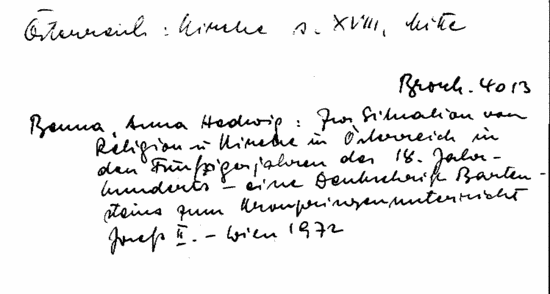 Österreich : Kirche s. XVIII, Mitte
Brosch. 4013
Benna, Anna Hedwig : Zur Situation von
Religion u. Kirche in Österreich in
den Fünfzigerjahren des 18. Jahr-
hunderts - eine Denkschrift Barten-
steins zum Kronprinzenunterricht
Josefs II. - Wien 1972